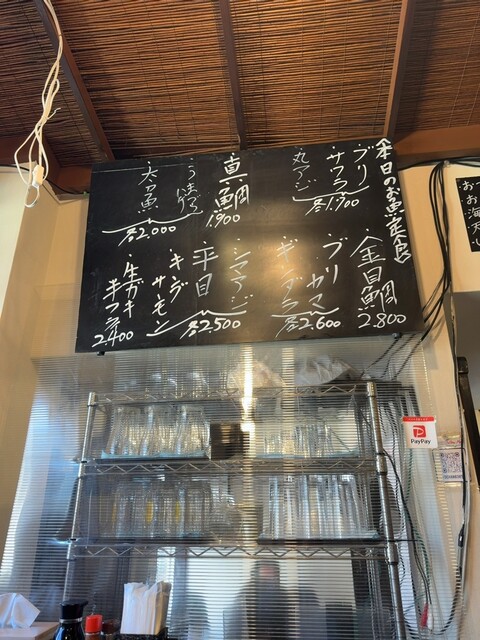 本日のお魚定食
・ブリ
・サワラ
・丸アジ
各1,700
・真鯛
1,900
・太刀魚
各2,000
・金目鯛
2,800
・ブリカマ
・ギンダラ
各2,600
・シマアジ
・平目
・キングサーモン
各2,500
・生ガキ
2,400
PayPay